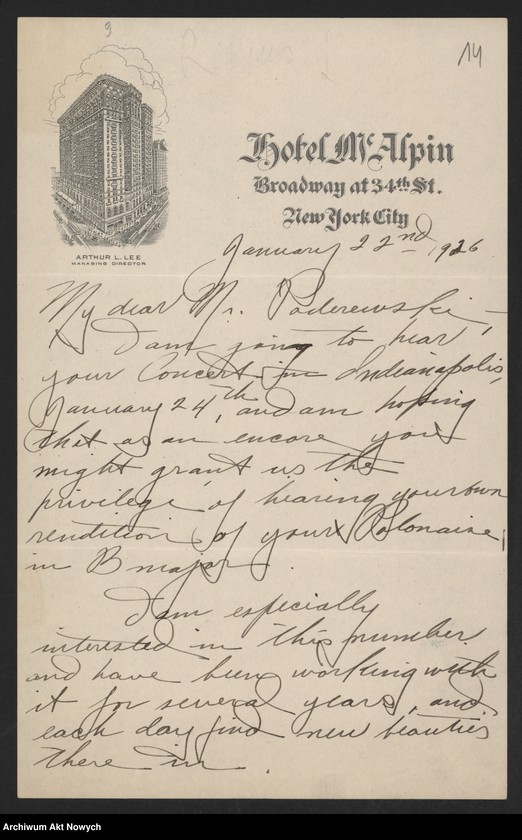 9
14
Hotel McAlpin
Broadway at 34th St.
New York City
ARTHUR L. LEE
MANAGING DIRECTOR
January 22nd, 1926
My dear Mr. Paderewski,—
I am going to hear
your Concert in Indianapolis,
January 24th, and am hoping
that as an encore you
might grant us the
privilege of hearing your own
rendition of your Polonaise,
in B major.
I am especially
interested in this number
and have been working with
it for several years, and
each day find new beauties
there in.
Archiwum Akt Nowych